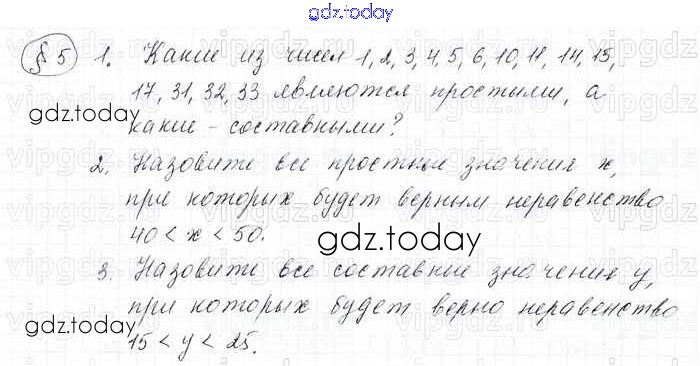 gdz.today
§5 1. Какие из чисел 1, 2, 3, 4, 5, 6, 10, 11, 14, 15,
17, 31, 32, 33 являются простыми, а
gdz.today
какие – составными?
2. Назовите все простые значения x,
при которых будет верным неравенство
40 < x < 50.
gdz.today
3. Назовите все составные значения y,
при которых будет верно неравенство
gdz.today
15 < y < 25.